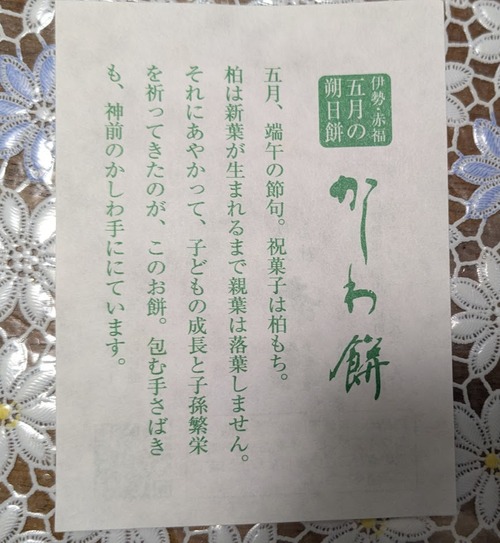 伊勢・赤福
五月の
朔日餅
かしわ餅
五月、端午の節句。祝菓子は柏もち。
柏は新葉が生まれるまで親葉は落葉しません。
それにあやかって、子どもの成長と子孫繁栄
を祈ってきたのが、このお餅。包む手さばき
も、神前のかしわ手ににています。